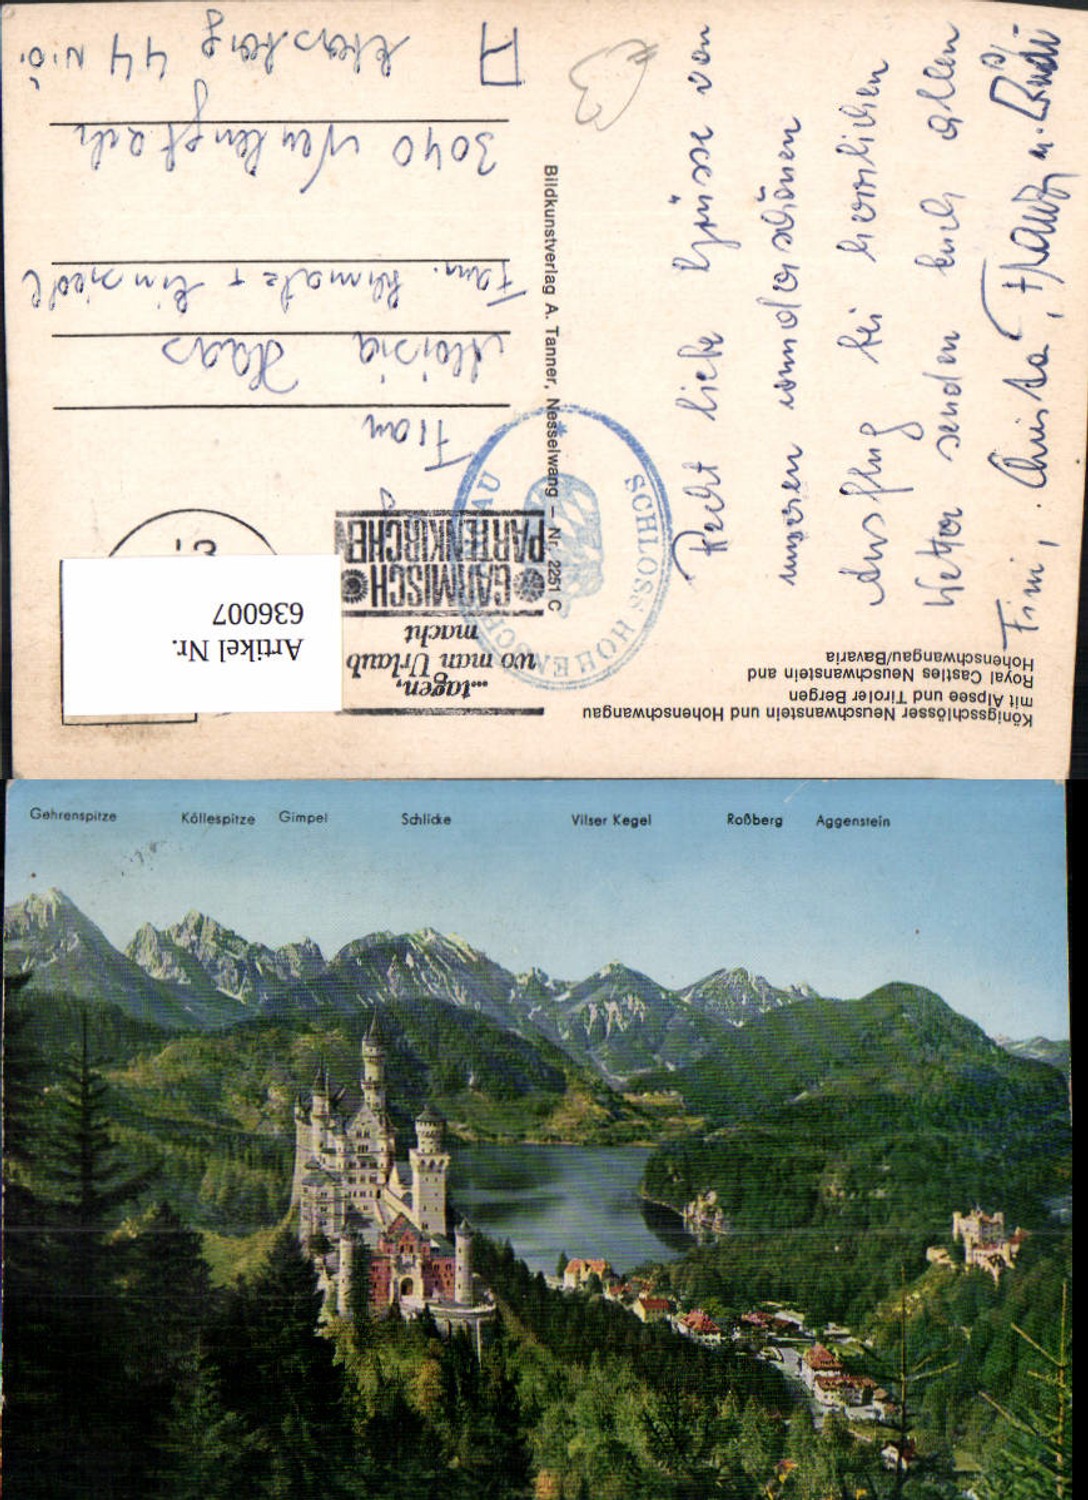 Königsschlösser Neuschwanstein und Hohenschwangau
mit Alpsee und Tiroler Bergen
Royal Castles Neuschwanstein and
Hohenschwangau/Bavaria
...tagen,
wo man Urlaub
macht
GARMISCH
PARTENKIRCHEN
Artikel Nr.
636007
SCHLOSS HOHENSCHWANGAU
Bildkunstverlag A. Tanner, Nesselwang – Nr. 2251 C
Recht liebe Grüsse von
unseren wunderschönen
Ausflug bei herrlichen
Wetter senden euch allen
Fini, Christa, Franz u. Rudi
Frau
Maria Haas
Fam.
3040 Neulengbach
44 N.Ö.
A
Gehrenspitze Köllespitze Gimpel Schlicke Vilser Kegel Roßberg Aggenstein